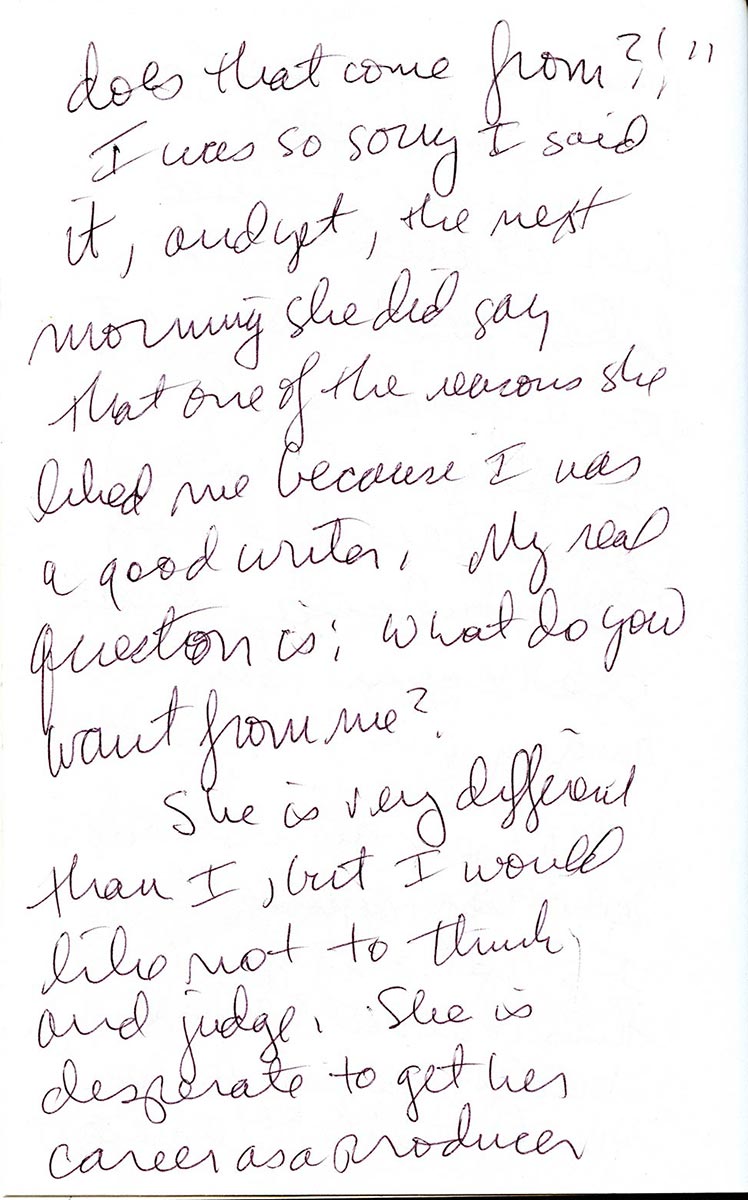 does that come from?!"
I was so sorry I said
it, and yet, the next
morning she did say
that one of the reasons she
liked me because I was
a good writer. My real
question is; what do you
want from me?
She is very different
than I, but I would
like not to think
and judge. She is
desperate to get her
career as a producer